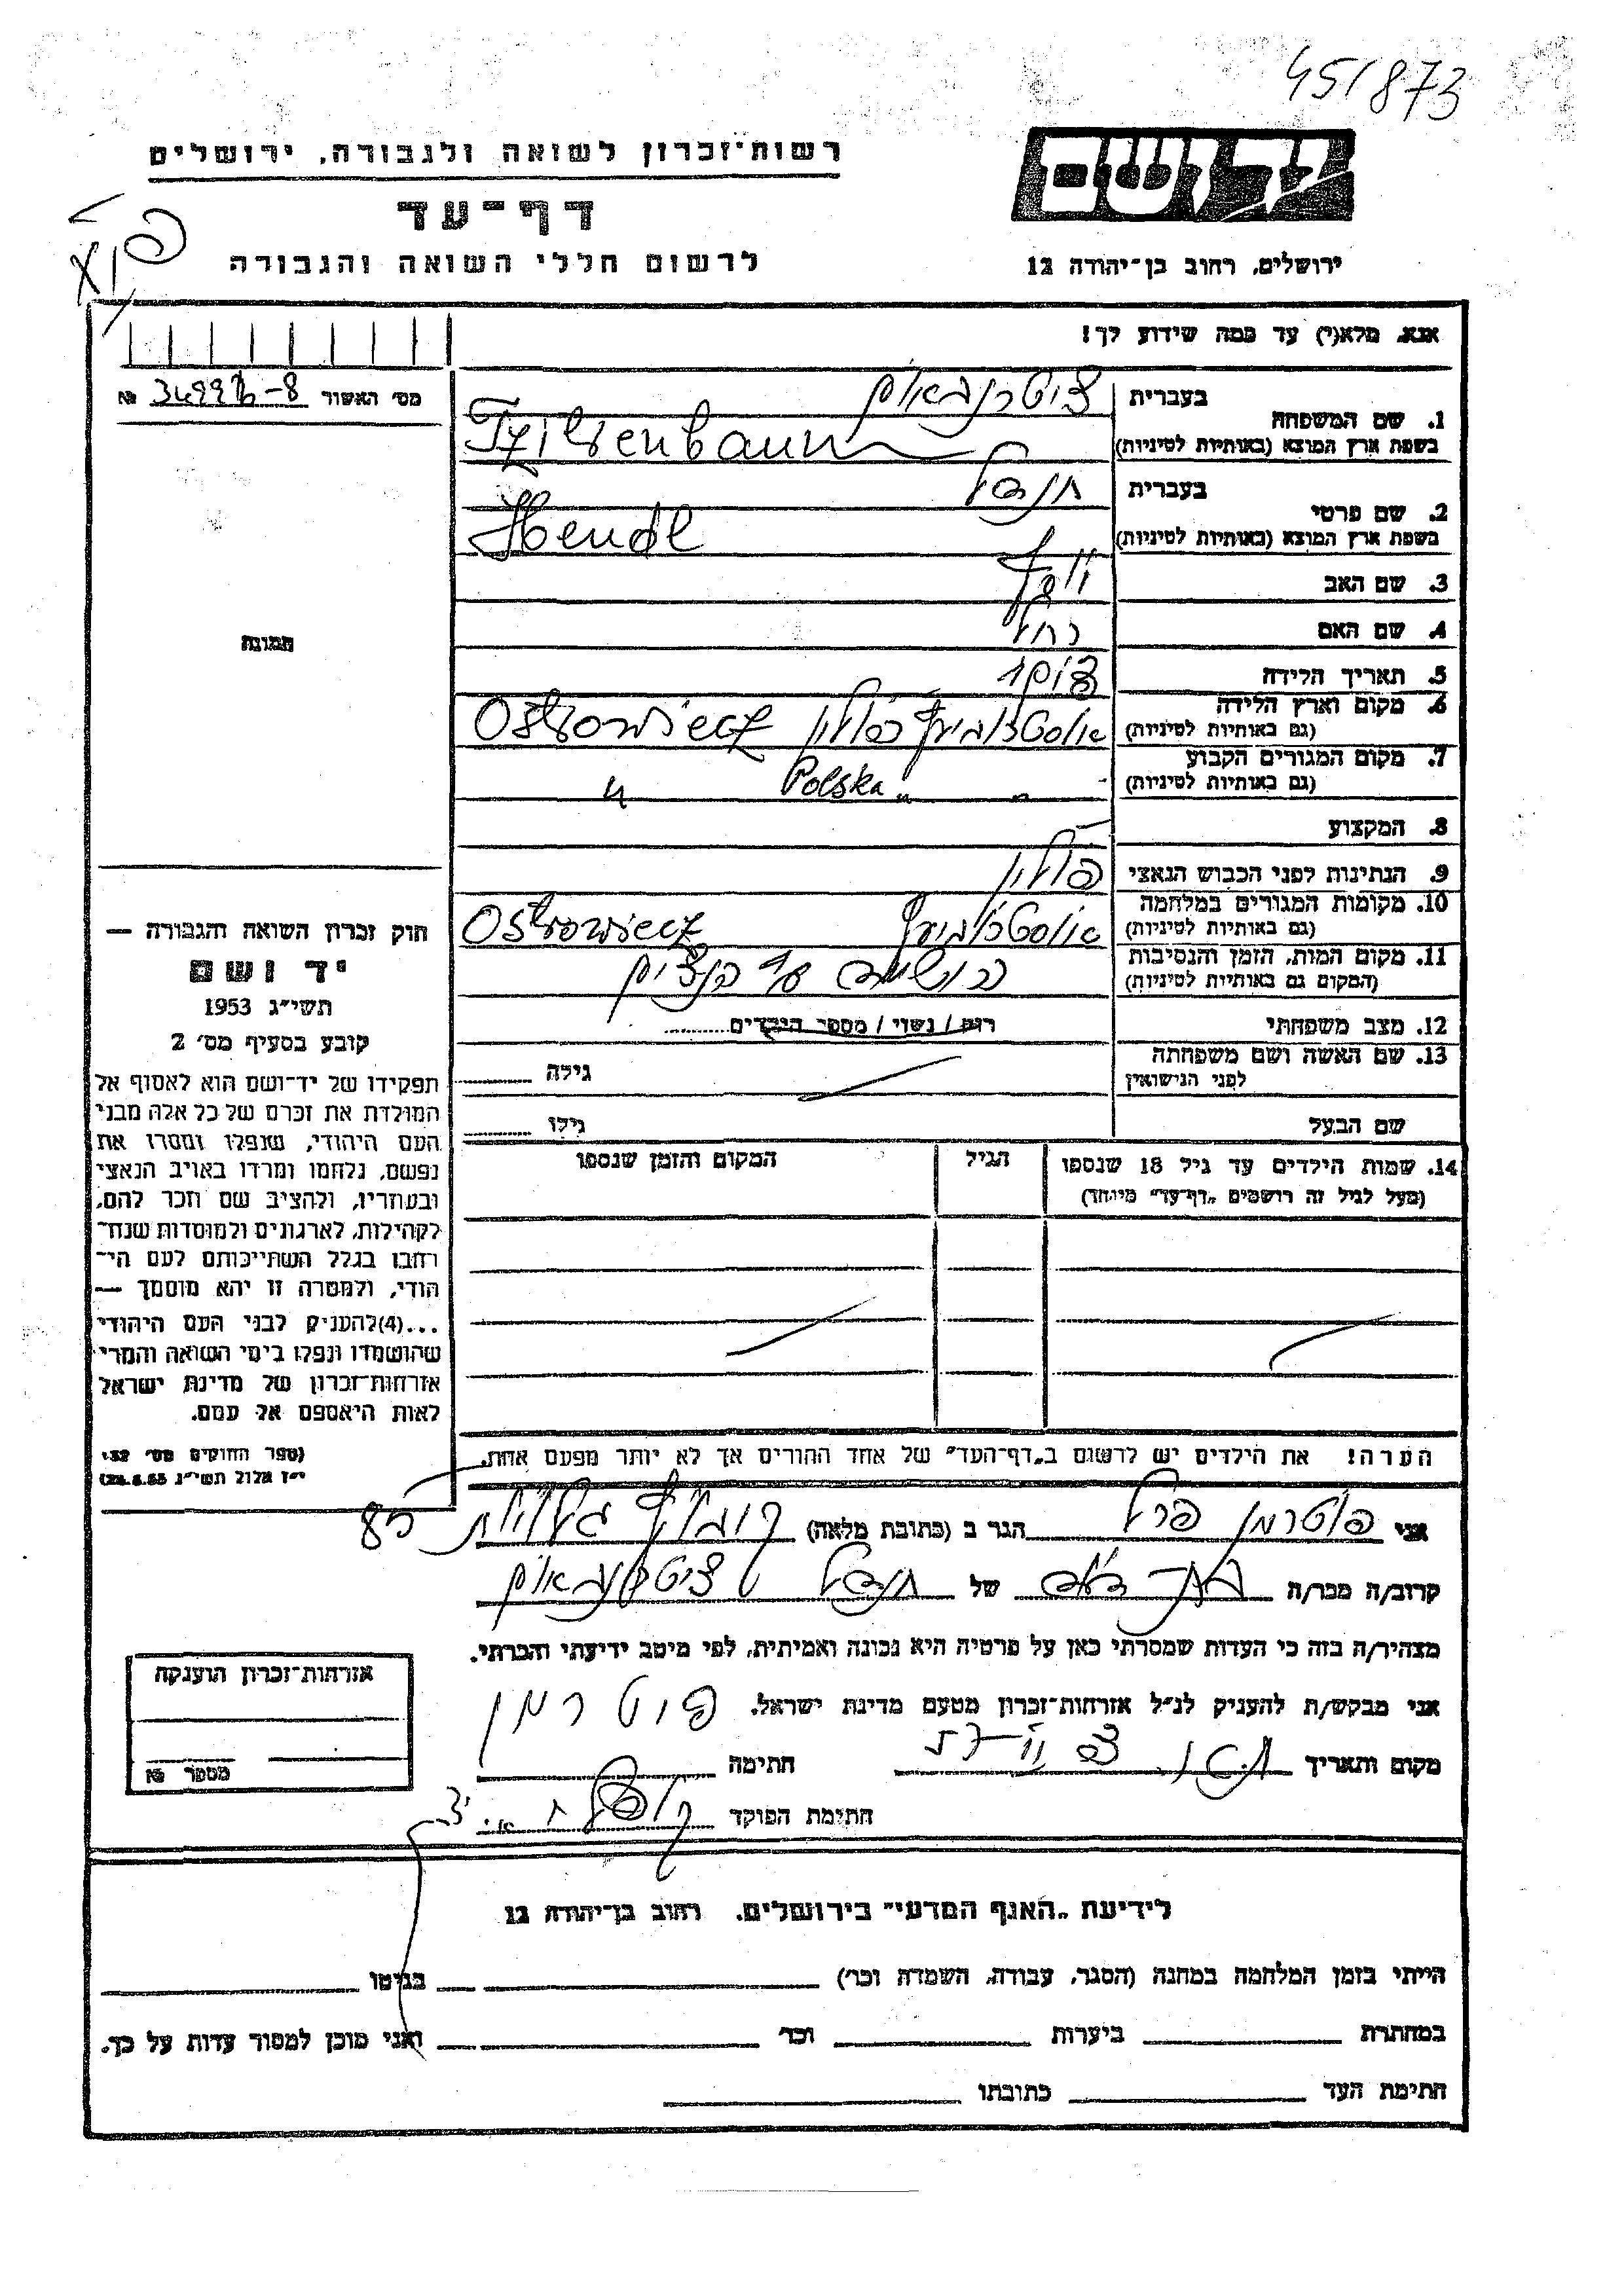 451873
רשות־זכרון לשואה ולגבורה, ירושלים
יד ושם
דף־עד
לרשום חללי השואה והגבורה
ירושלים, רחוב בן־יהודה 12
אנא, מלא(י) עד כמה שידוע לך!
מס׳ האשור №
1. שם המשפחה
בעברית ציטרנבאום
בשפת ארץ המוצא (באותיות לטיניות) Tzitrenbaum
2. שם פרטי
בעברית הנדל
בשפת ארץ המוצא (באותיות לטיניות) Hendl
3. שם האב יוסף
4. שם האם רחל
5. תאריך הלידה
6. מקום וארץ הלידה
(גם באותיות לטיניות) פולין Ostrowiecz
7. מקום המגורים הקבוע
(גם באותיות לטיניות) " Polska "
8. המקצוע -
9. הנתינות לפני הכבוש הנאצי פולין
10. מקומות המגורים במלחמה
(גם באותיות לטיניות) Ostrowiecz
11. מקום המות, הזמן והנסיבות
(המקום גם באותיות לטיניות) הנצים
12. מצב משפחתי רוק / נשוי / מספר הילדים
13. שם האשה ושם משפחתה
לפני הנישואין גילה
שם הבעל גילו
14. שמות הילדים עד גיל 18 שנספו הגיל המקום והזמן שנספו
(מעל לגיל זה רושמים „דף־עד" מיוחד)
הערה! את הילדים יש לרשום ב„דף־העד" של אחד ההורים אך לא יותר מפעם אחת.
תמונה
חוק זכרון השואה והגבורה —
יד ושם
תשי״ג 1953
קובע בסעיף מס׳ 2
תפקידו של יד־ושם הוא לאסוף אל
המולדת את זכרם של כל אלה מבני
העם היהודי, שנפלו ומסרו את
נפשם, נלחמו ומרדו באויב הנאצי
ובעוזריו, ולהציב שם וזכר להם,
לקהילות, לארגונים ולמוסדות שנח־
רבו בגלל השתייכותם לעם הי־
הודי, ולמטרה זו יהא מוסמך —
...(4) להעניק לבני העם היהודי
שהושמדו ונפלו בימי השואה והמרי
אזרחות־זכרון של מדינת ישראל
לאות היאספם אל עמם.
(ספר החוקים מס׳ 132,
י״ז אלול תשי״ג 28.8.53)
אני פוטרמן פרל הגר ב (כתובת מלאה) גלויות 85
קרוב/ה מכר/ה בת־דוד של הנדל ציטרנבאום
מצהיר/ה בזה כי העדות שמסרתי כאן על פרטיה היא נכונה ואמיתית, לפי מיטב ידיעתי והכרתי.
אני מבקש/ת להעניק לנ״ל אזרחות־זכרון מטעם מדינת ישראל. פוטרמן
מקום ותאריך חתימה
חתימת הפוקד
אזרחות־זכרון הוענקה
מספר №
לידיעת „האגף המדעי" בירושלים, רחוב בן־יהודה 12
הייתי בזמן המלחמה במחנה (הסגר, עבודה, השמדה וכר׳) בגיטו
במחתרת ביערות וכר׳ ואני מוכן למסור עדות על כך.
חתימת העד כתובתו